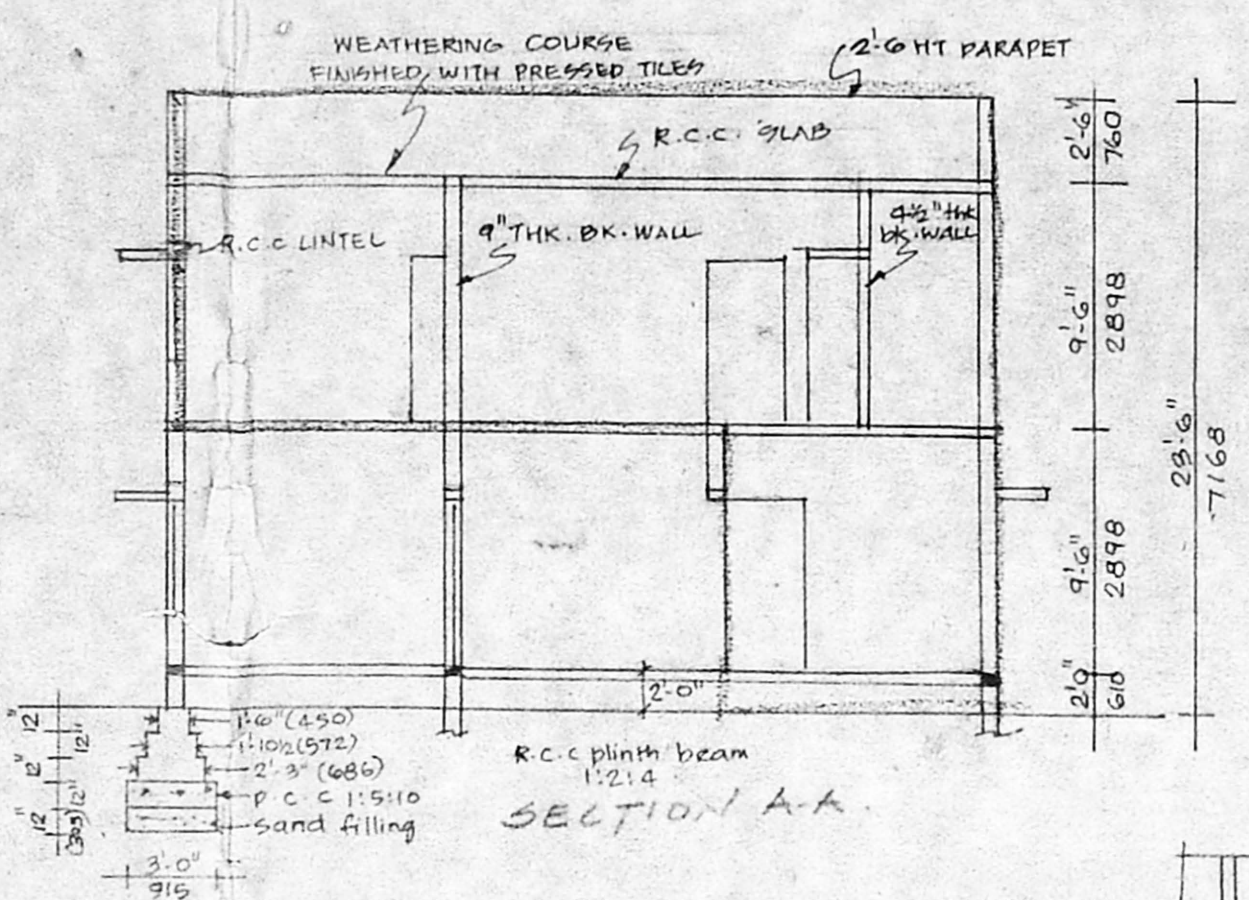 WEATHERING COURSE
FINISHED WITH PRESSED TILES
2'-6 HT PARAPET
R.C.C. SLAB
R.C.C LINTEL
9" THK. BK. WALL
4½" thk
bk. WALL
2'-6"
760
9'-6"
2898
9'-6"
2898
2'0"
610
23'-6"
7168
2'-0"
12"
12"
12"
12"
12"
(305)
1'-6" (450)
1'-10½ (572)
2'-3" (686)
P.C.C 1:5:10
Sand filling
3'-0"
915
R.C.C plinth beam
1:2:4
SECTION A-A.